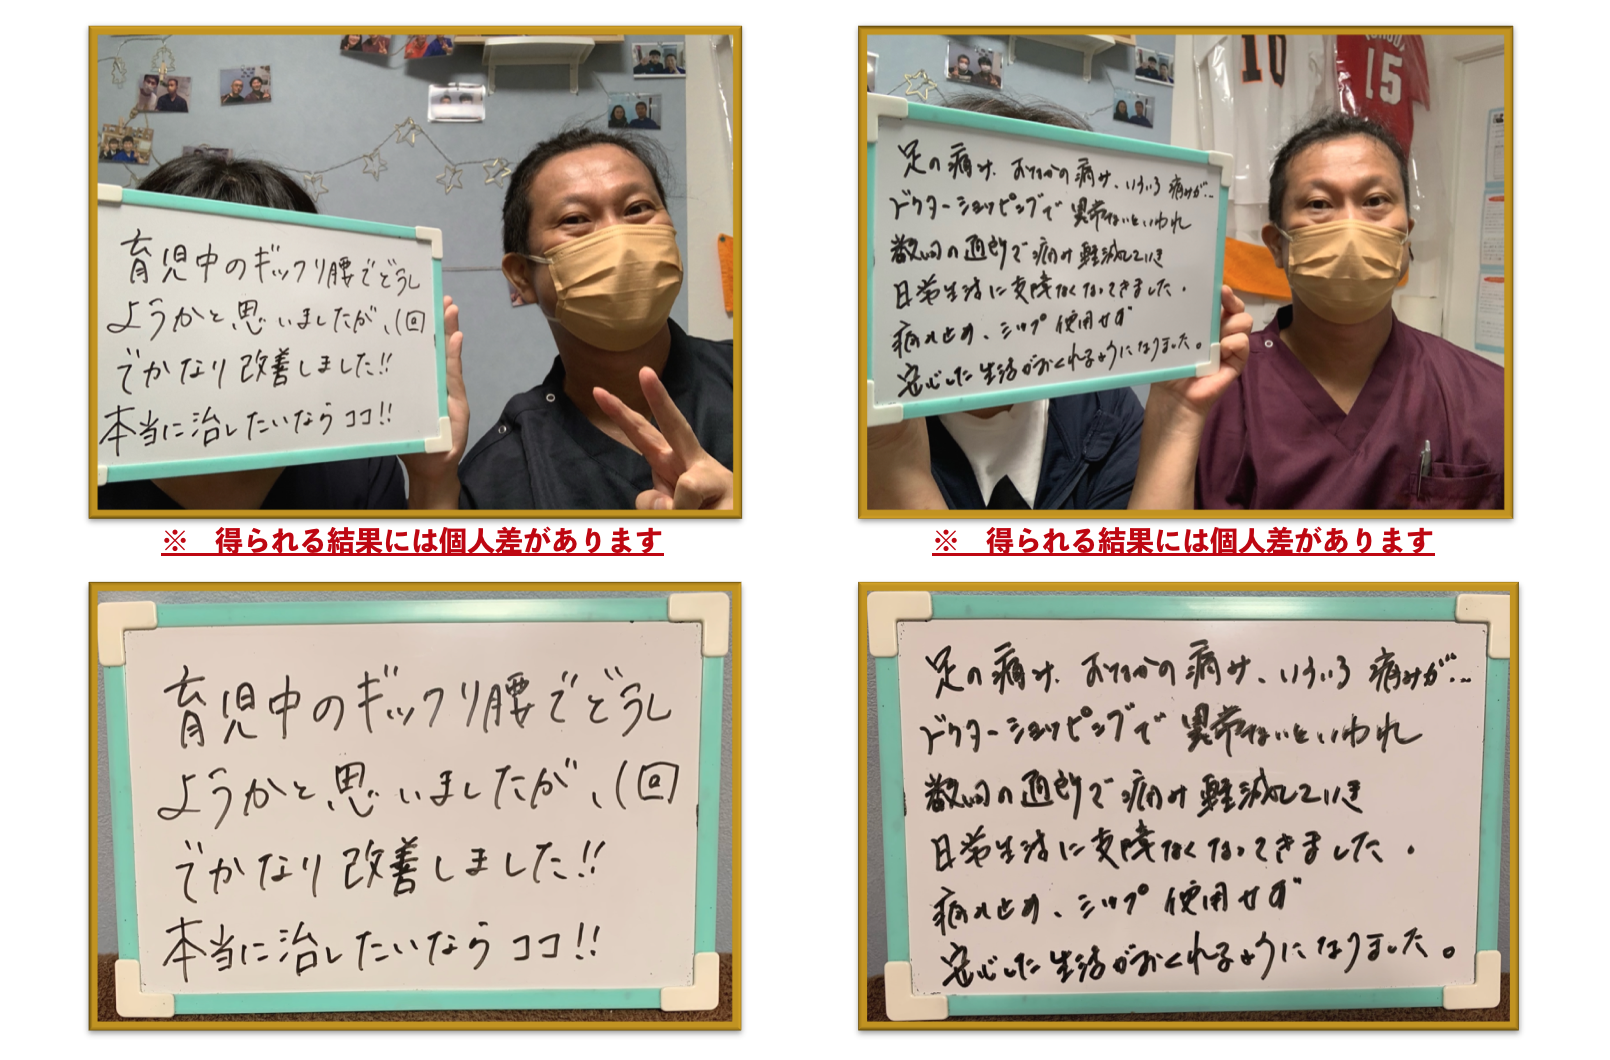 育児中のギックリ腰でどうし
ようかと思いましたが、1回
でかなり改善しました!!
本当に治したいならココ!!
※　得られる結果には個人差があります
10
15
足の痛み、おなかの痛み、いろいろ痛みが…
ドクターショッピングで異常ないといわれ
数回の通所で痛み軽減していき
日常生活に支障なくなってきました.
痛み止め、シップ使用せず
安心した生活がおくれるようになりました。
※　得られる結果には個人差があります
育児中のギックリ腰でどうし
ようかと思いましたが、1回
でかなり改善しました!!
本当に治したいならココ!!
足の痛み、おなかの痛み、いろいろ痛みが…
ドクターショッピングで異常ないといわれ
数回の通所で痛み軽減していき
日常生活に支障なくなってきました.
痛み止め、シップ使用せず
安心した生活がおくれるようになりました。